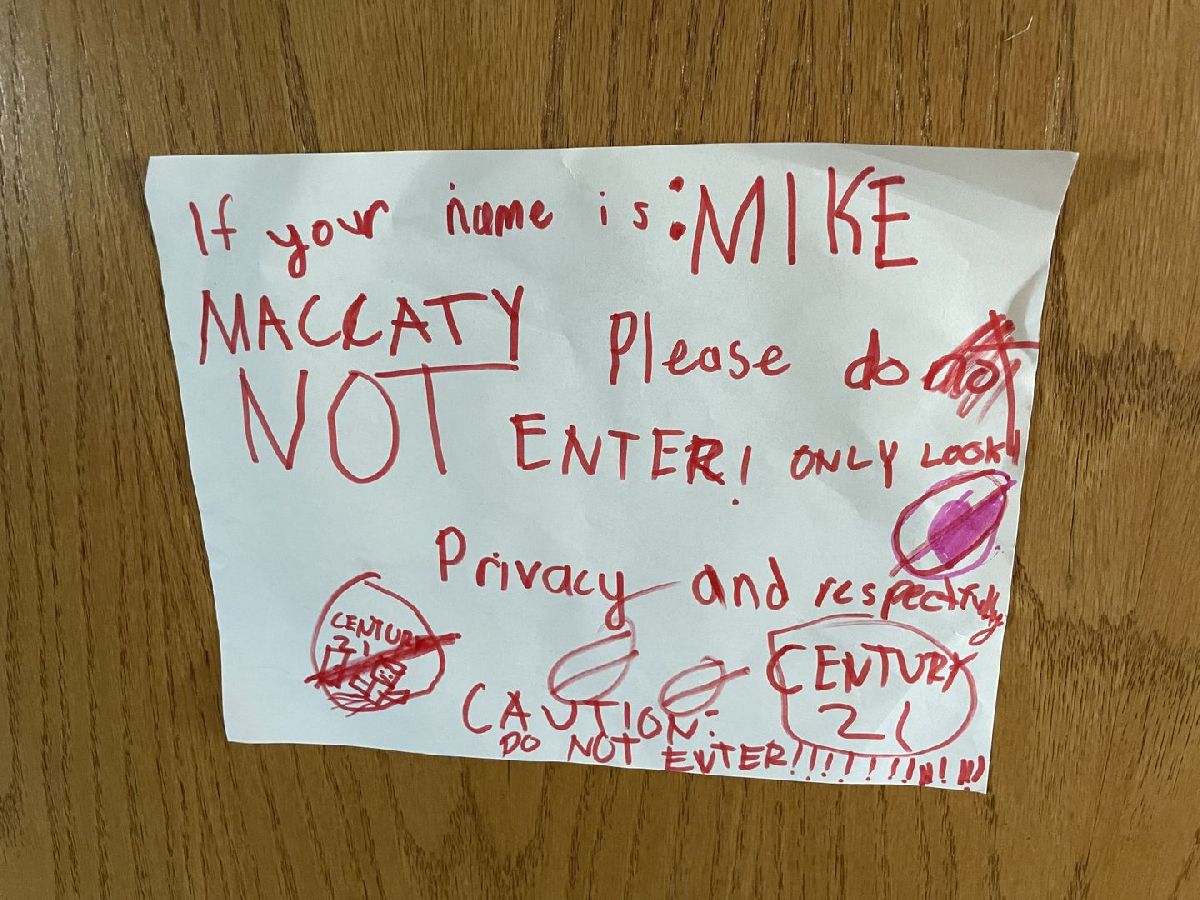 If your name is: MIKE
MACCATY Please do
NOT ENTER! ONLY LOOK!
Privacy and respectfully
CENTURY
21
CENTURY
21
CAUTION:
DO NOT EVTER!!!!!!!!!!!!